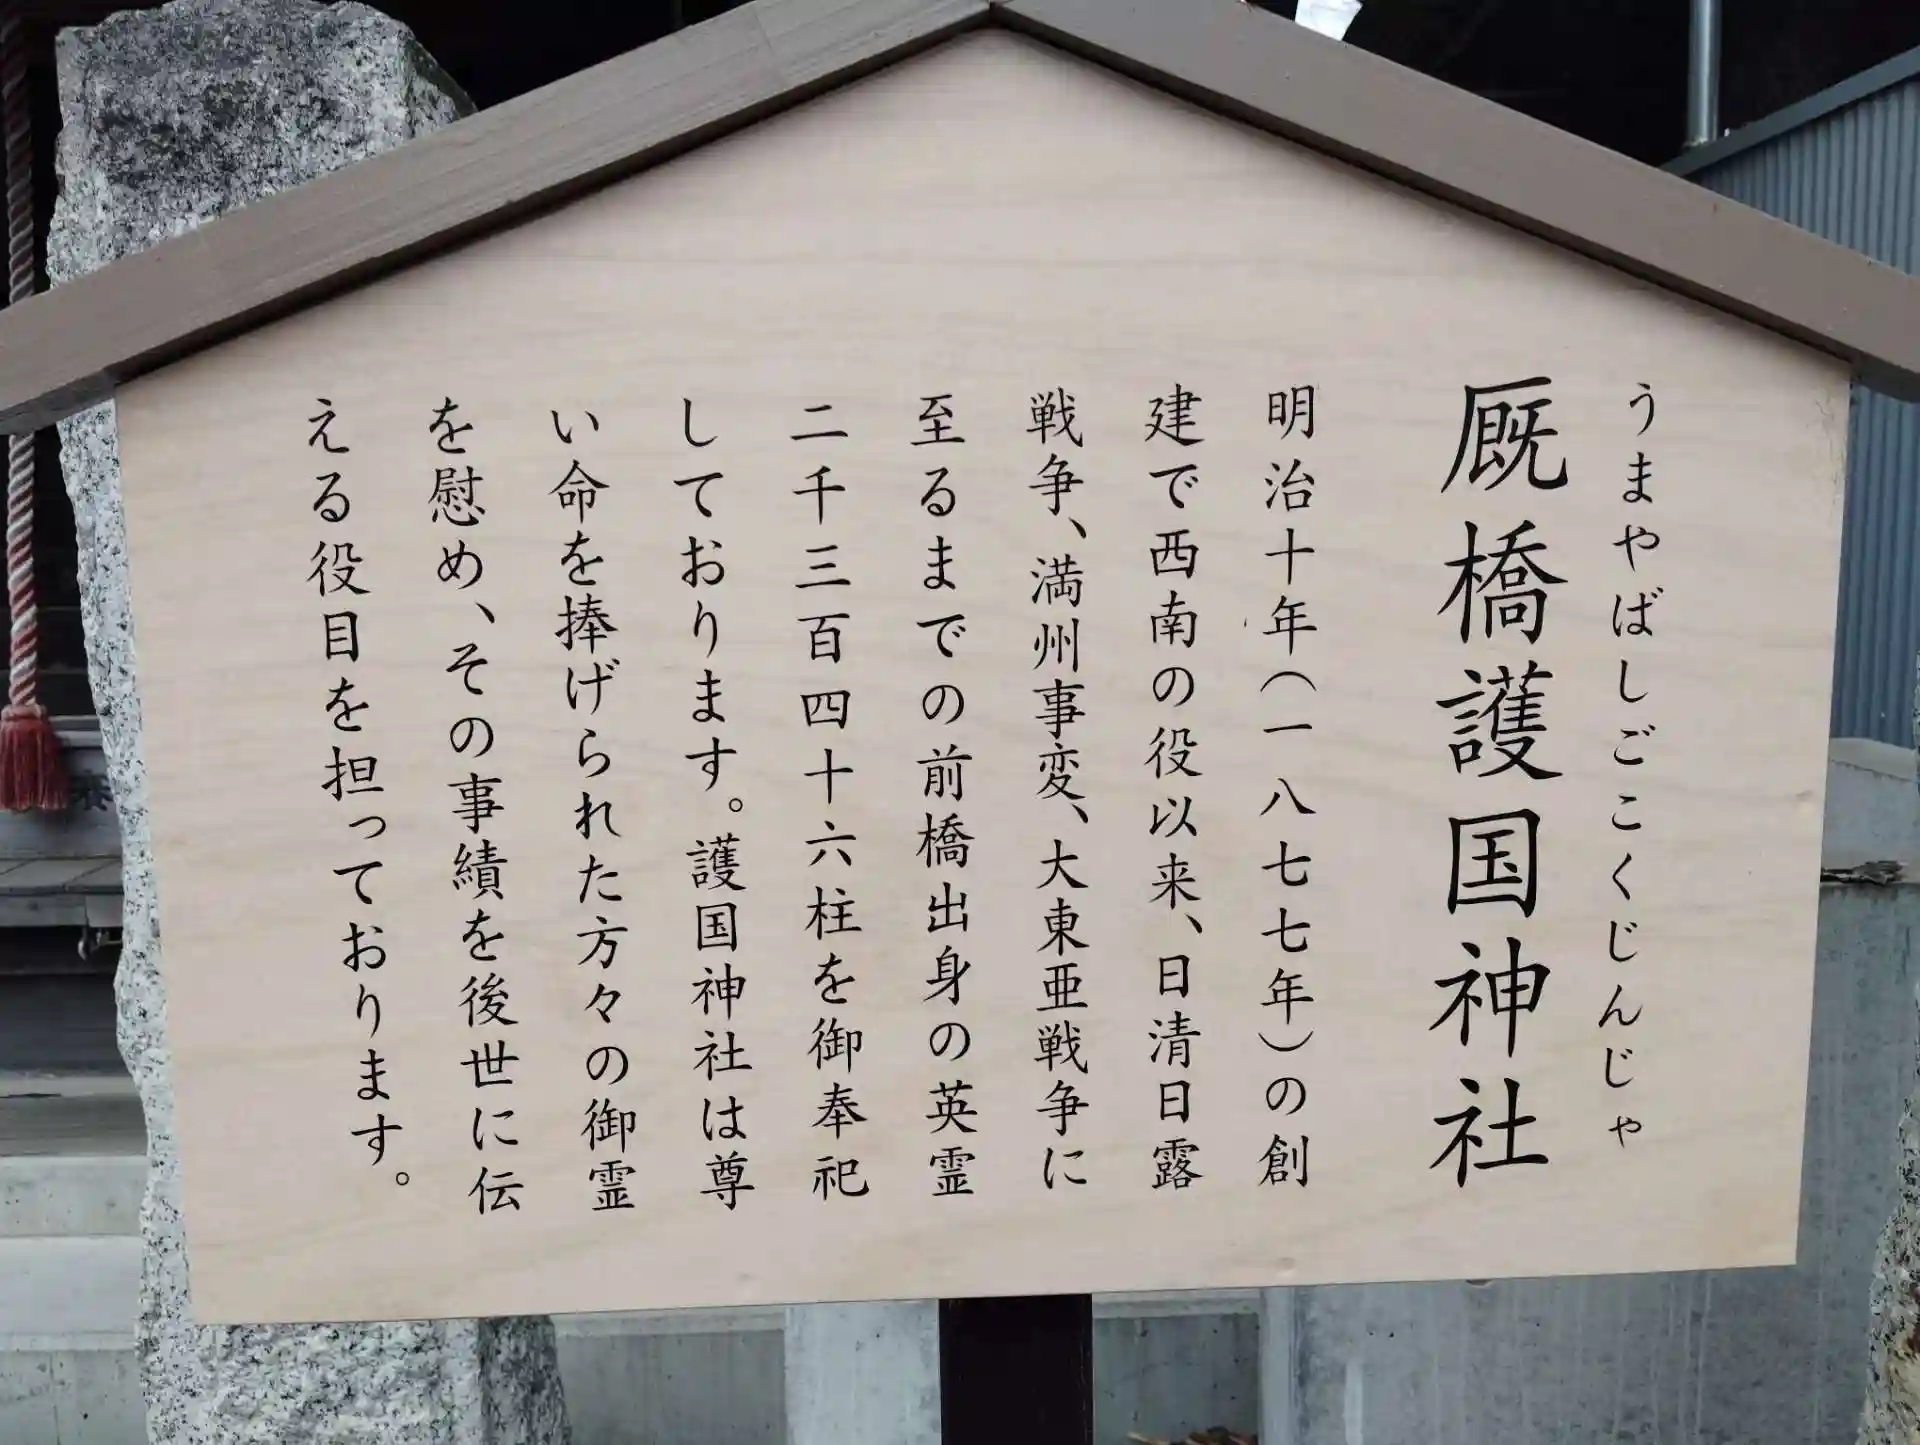 うまやばしごこくじんじゃ
厩橋護国神社
明治十年(一八七七年)の創
建で西南の役以来、日清日露
戦争、満州事変、大東亜戦争に
至るまでの前橋出身の英霊
二千三百四十六柱を御奉祀
しております。護国神社は尊
い命を捧げられた方々の御霊
を慰め、その事績を後世に伝
える役目を担っております。